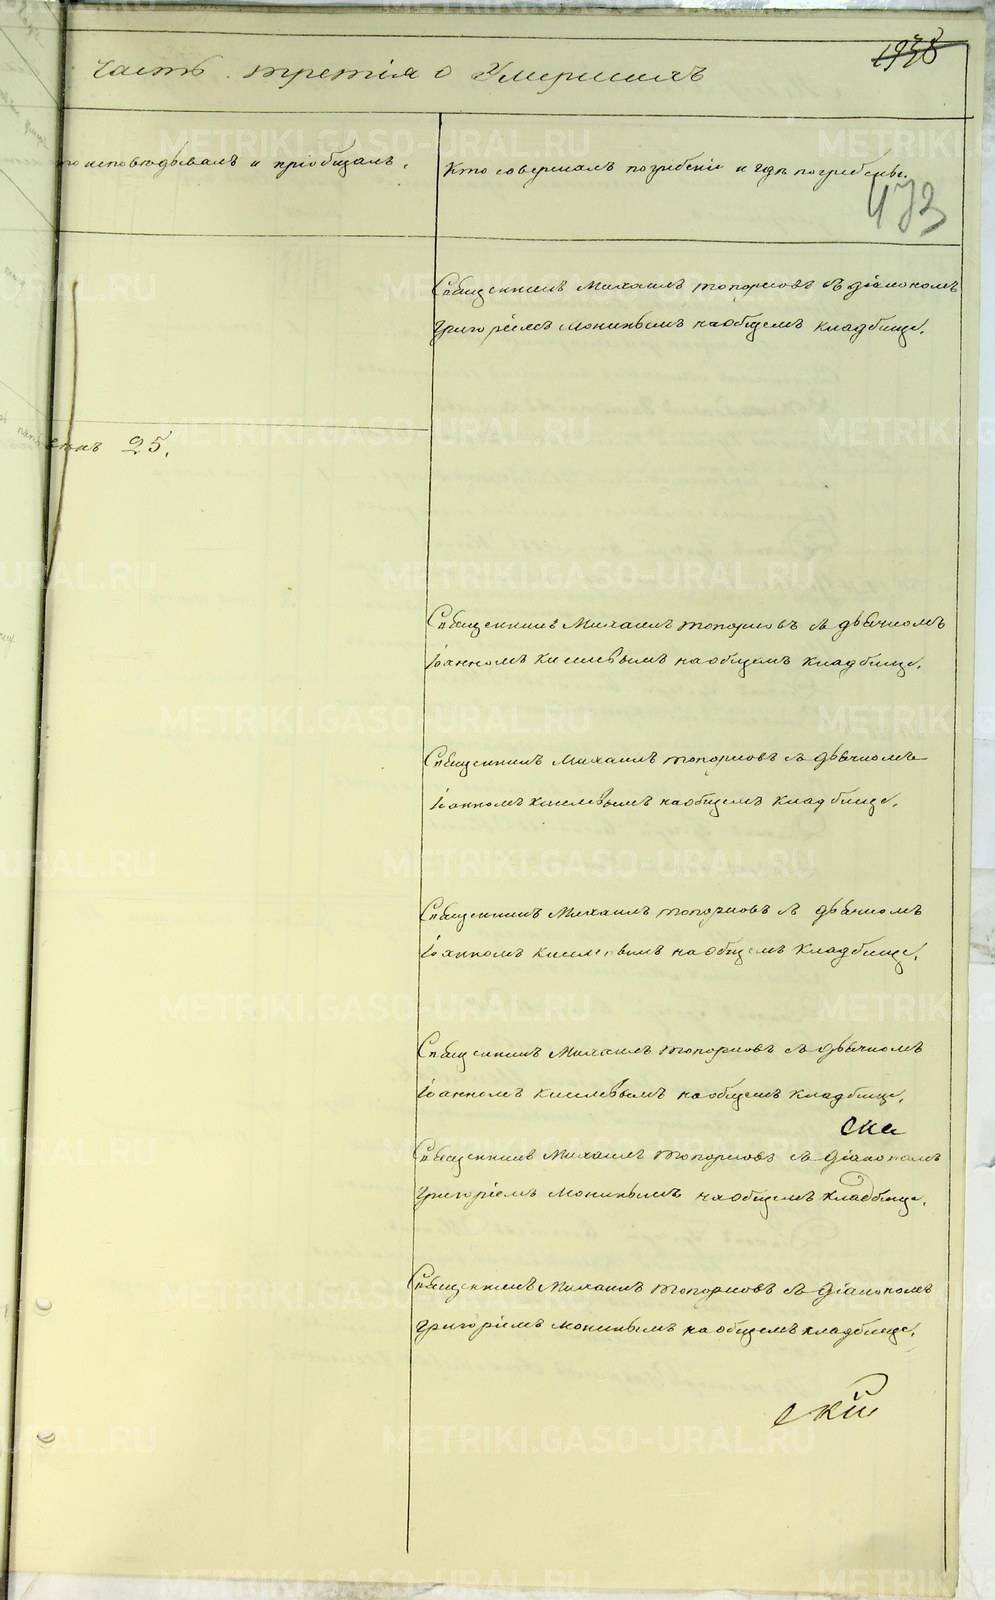 Часть третія о Умершихъ
исповѣдывалъ и пріобщалъ.
Кто совершалъ погребеніе и гдѣ погребены.
473
Священникъ Михаилъ Топорковъ съ діакономъ
Григоріемъ Мокинымъ на общемъ кладбище.
25.
Священникъ Михаилъ Топорковъ съ дьячкомъ
Іоанномъ Киселевымъ на общемъ кладбище.
Священникъ Михаилъ Топорковъ съ дьячкомъ
Іоанномъ Киселевымъ на общемъ кладбище.
Священникъ Михаилъ Топорковъ съ дьячкомъ
Іоанномъ Киселевымъ на общемъ кладбище.
Священникъ Михаилъ Топорковъ съ дьячкомъ
Іоанномъ Киселевымъ на общемъ кладбище.
ска
Священникъ Михаилъ Топорковъ съ Діакономъ
Григоріемъ Мокинымъ на общемъ кладбище.
Священникъ Михаилъ Топорковъ съ Діакономъ
Григоріемъ Мокинымъ на общемъ кладбище.
скій
METRIKI.GASO-URAL.RU